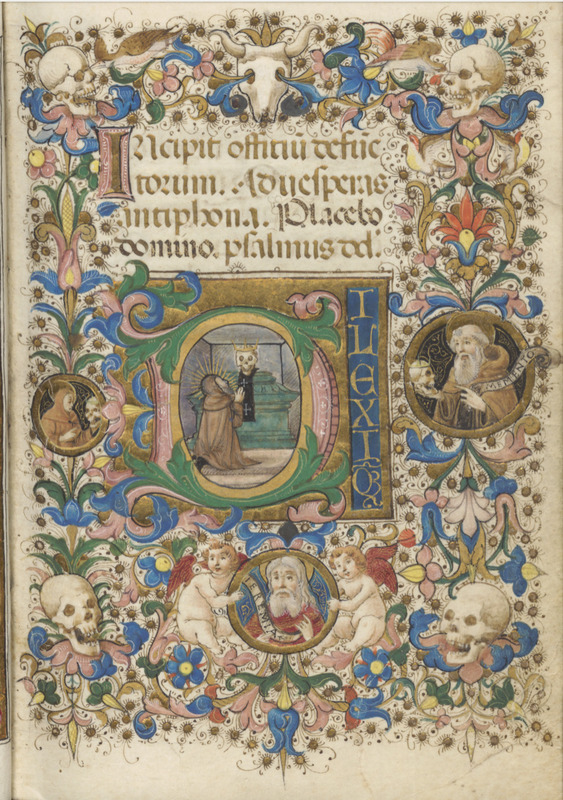 INcipit offitiū defūc
torum. Ad uesperas
antiphona. Placebo
domino. psalmus dd.
DILEXI Q̄